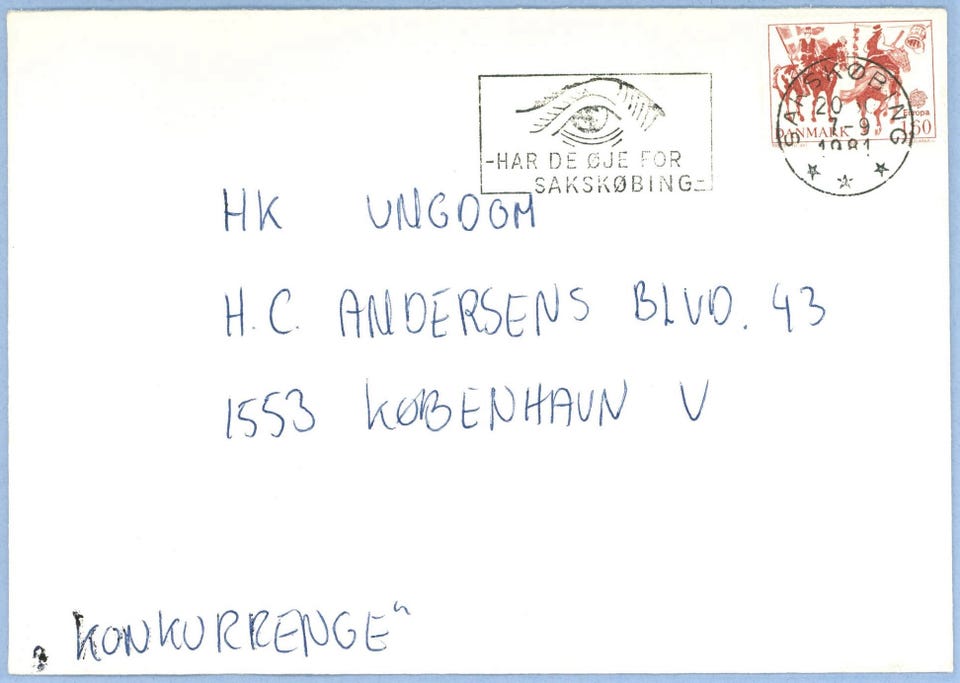 -HAR DE ØJE FOR
SAKSKØBING-
SAKSKØBING
20
7-9
1981
Europa
DANMARK 160
HK UNGDOM
H.C. ANDERSENS BLVD. 43
1553 KØBENHAVN V
"KONKURRENGE"